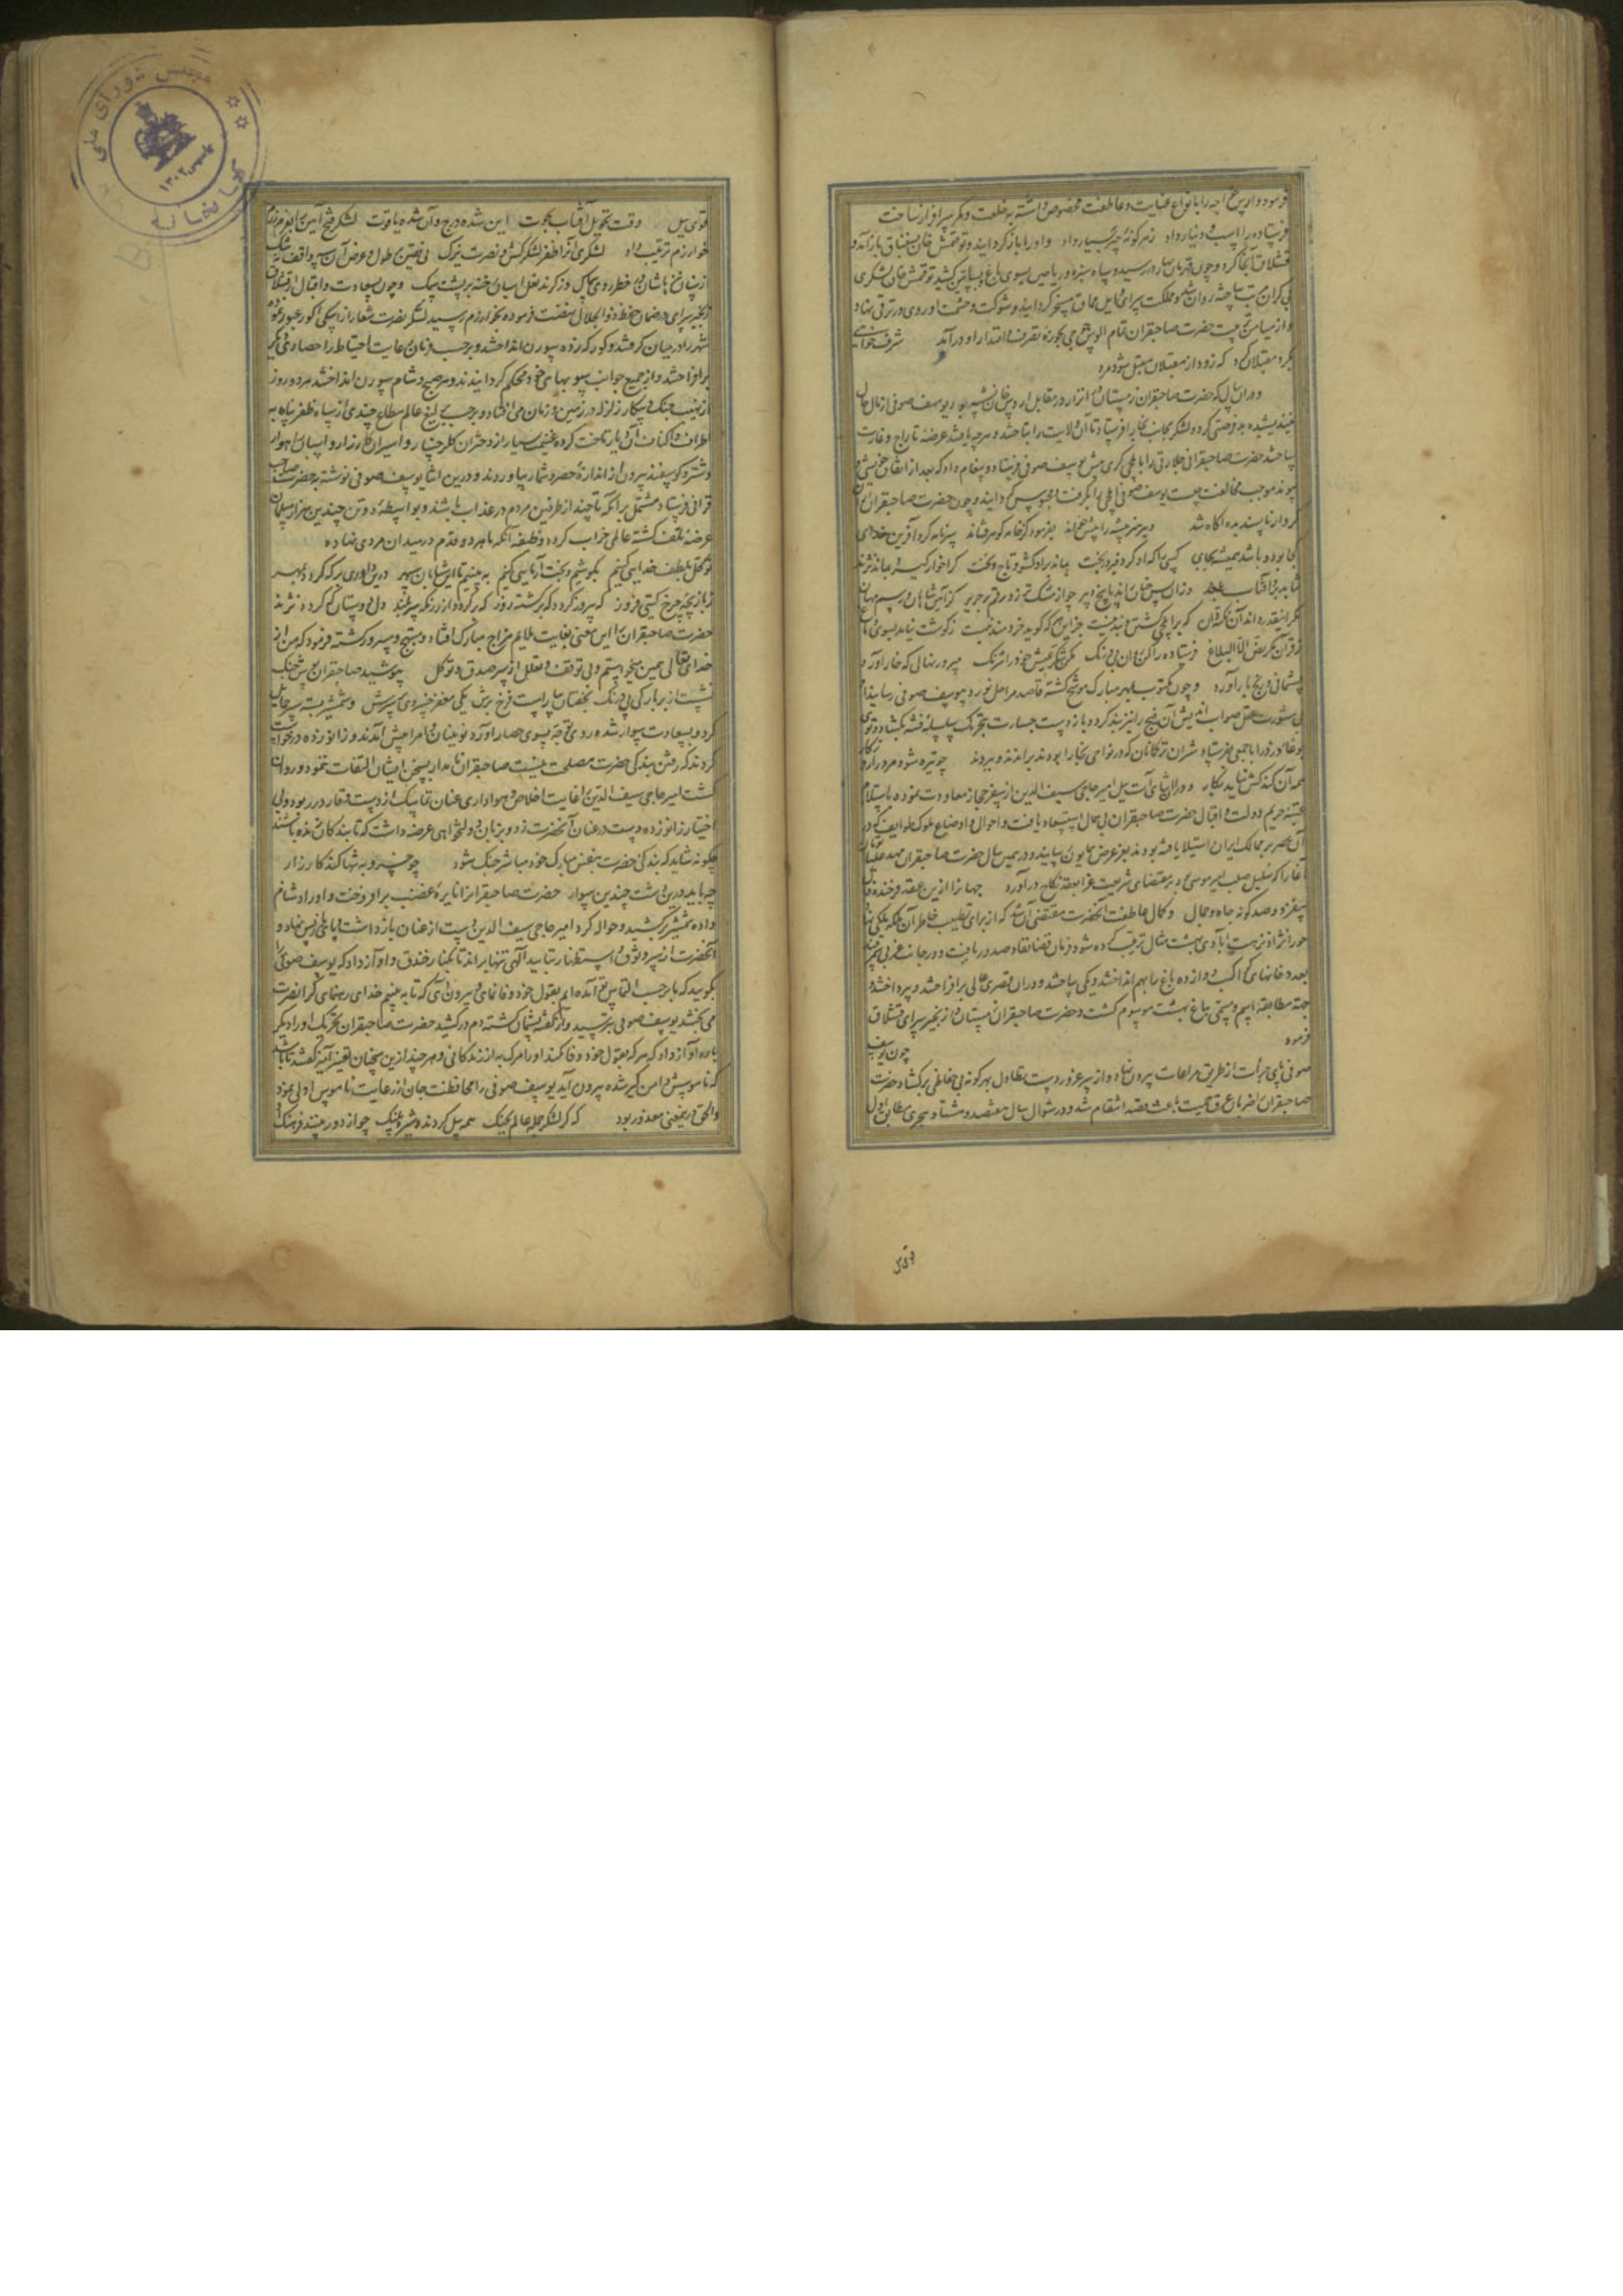 فرمود و ارس خواجه را بانواع عنایت و عاطفت مخصوص داشته به خلعت و کمر سرافراز ساخت
فرستاده را اسب و دینار داد زهر گونه چیز بسیار داد و او را بازگردانید و توقتمش خان بسغناق بازآمد و
قشلاق آنجا کرد و چون قهرمان بهار در رسید و سپاه سبزه و ریاحین بسوی باغ و بساتین کشید توقتمش خان لشکری
بی کران مرتب ساخته روان شد و مملکت سرای و ایل مماق مسخر گردانید و شوکت و حشمت او روی در ترقی نهاد
و از میامن تربیت حضرت صاحبقران تمام الوس جوجی بحوزه تصرف و اقتدار او درآمد شرف خواهی
بگرد مقبلان گرد که زود از مقبلان مقبل شود مرد
و در آن سال که حضرت صاحبقران زمستان در اترار در مقابل اردوی خان نشسته بود یوسف صوفی از مآل حال
نیندیشیده بی فرصتی کرده لشکر بجانب بخارا فرستاد تا آن ولایت را بتاختند و هرچه یافتند عرضه تاراج و غارت
ساختند حضرت صاحبقرانی جلارتی را بایلچی گری پیش یوسف صوفی فرستاد و پیغام داد که بعد از اتفاق خویشی و
پیوند موجب مخالفت چیست یوسف صوفی ایلچی را بگرفت و محبوس گردانید و چون حضرت صاحبقران از آن
کردار ناپسندیده آگاه شد دبیر هنرپیشه را پیش خواند بفرمود کز خامه گوهر فشاند سرنامه کرد آفرین خدای
کجا بود و باشد همیشه بجای کسی را که او کرد فیروزبخت بماند برو کشور و تاج و تخت کرا خوار گیرد بماند نژند
نتابد برو آفتاب بلند وزان پس چنین راند پاسخ دبیر چو از مشک تر زد رقم بر حریر کز آیین شاهان و رسم مهان
مگر اینقدر داند آن نکته دان که بر ایلچی کشتن و بند نیست جز این هم که گوید خردمند نیست
ز قرآن نگر نص الا البلاغ فرستاده را کن روان بی درنگ مکن شکر عیش خود را شرنگ مپرور نهالی که خار آورد
پشیمانی و رنج بار آورد و چون مکتوب بمهر مبارک موشح گشته قاصد مراحل نورد بیوسف صوفی رسانید او
بی مشورت عقل صواب اندیش آن نیز را نیز بند کرد و باز دست جسارت بتحریک سلسله فتنه بگشاد و توی
بوغا دزد را با جمعی بفرستاد و شتران ترکانان که در نواحی بخارا بودند براندند و ببردند چو تیره شود مرد را روزگار
همه آن کند کش نیاید بکار و در اثنای آن امیر حاجی سیف الدین از سفر حجاز معاودت نموده باستلام
عتبه حریم دولت و اقبال حضرت صاحبقران بی همال استسعاد یافت و احوال و اوضاع ملوک طوایف که در
آن عصر بر ممالک ایران استیلا یافته بودند بعز عرض همایون رسانید و در همین سال حضرت صاحبقران مهد علیا
آغا را که سلیل صلب امیر موسی بود بر مقتضای شریعت غرا بعقد نکاح درآورد جهانرا ازین عقد فرخنده فال
بیفزود صد گونه جاه و جمال و کمال عاطفت آنحضرت مقتضی آن شد که از برای تطییب خاطر آن ملکه ملکی نهاد
حورانژاد نزهت آبادی بهشت مثال ترتیب کرده شود فرمان قضا نفاذ صدور یافت و در جانب غربی سمرقند
بعد و خانهای دوازده باغ را بهم انداختند و یکی ساختند و در آن قصری عالی برافراختند و پرداختند و
جهة مطابقه اسم و مسمی بباغ بهشت موسوم گشت و حضرت صاحبقران زمستان در زنجیر سرای قشلاق
فرمود چون یوسف
صوفی پای جرأت از طریق مراعات بیرون نهاد و از سر غرور دست تطاول بهر گونه بی حفاظی برگشاد حضرت
صاحبقران را عرق حمیت باعث قصد انتقام شد و در شوال سال هفتصد و هشتاد هجری مطابق اول
قوی ییل
قوی ییل وقت تحویل آفتاب بحوت این شده درج و آن شده یاقوت لشکر فتح آیین را بعزم
خوارزم ترتیب داد لشکری از ظفر لشکرکش و نصرت یزک نی یقین بر طول و عرض آن سپه واقف نه شک
از سنان نیزه هاشان در خطر روی سماک وز گرد نعل اسبان خسته بر پشت سمک و چون سعادت و اقبال از قشلاق
زنجیر سرای در ضمان حفظ ذوالجلال نهضت فرموده بخوارزم رسید لشکر نصرت شعار از اسکی اکوز عبور نموده
شهر را در میان گرفتند و کورکه زده سورن انداختند و بر حسب فرمان رعایت احتیاط را حصارهای
برافراختند و از جمیع جوانب سوبها می خود محکم گردانیدند و هر صبح و شام سورن انداختند هر دو روز
از نهیب جنگ و پیکار زلزله در زمین و زمان می افتاد و بر حسب یرلیغ عالم مطاع چندی از سپاه ظفر پناه به
اطراف و اکناف آن دیار تاخت کرده غنیمت بسیار از دختران گلرخسار و اسیران کارزار و اسبان راهوار
و شتر و گوسفند بیرون از اندازه حصر و شمار بیاوردند و درین اثنا یوسف صوفی نوشته به حضرت صاحب
قرانی فرستاد مشتمل بر آنکه تا چند از طرفین مردم در عذاب باشند و بواسطه دو تن چندین هزار مسلمان
عرضه تلف گشته عالمی خراب گردد وظیفه آنکه ما هر دو قدم در میدان مردی نهاده
توکل بلطف خدایی کنیم بکوشیم و بخت آزمایی کنیم به بینیم تا این شتابان سپهر درین داوری بر که گردد بمهر
ز بازیچه چرخ گیتی فروز که پیروز گردد که برگشته روز که رگردد از رنگ سربلند دل دوستان که گردد نژند
حضرت صاحبقران را این معنی بغایت ملایم مزاج مبارک افتاد و مبتهج و مسرور گشته فرمود که من از
خدای تعالی همین میخواستم و بی توقف و تعلل از سر صدق و توکل بپوشید صاحبقران پوشش جنگ
نشست از بر بارگی بی درنگ بخفتان بیاراست فرخ برش یکی مغفر خسروی بر سرش و شمشیر بسته سپر حمایل
کرد و بسعادت سوار شده روی توجه بسوی حصار آورد نوینان و امرا پیش آمدند و زانو زده درخواست
کردند که رفتن بندگی حضرت مصلحت نیست صاحبقران نامدار بسخن ایشان التفات ننمود و روان
گشت امیر حاجی سیف الدین را غایت اخلاص و هواداری عنان تماسک از دست وقار در ربود و بی
اختیار زانو زده دست در عنان آنحضرت زد و بزبان دولتخواهی عرضه داشت که تا بندگان زنده باشند
چگونه شاید که بندگی حضرت بنفس مبارک خود مباشر جنگ شود چو خسرو به تنها کند کارزار
چه باید درین دشت چندین سوار حضرت صاحبقران را نایره غضب برافروخت و او را دشنام
داده شمشیر برکشید و حواله کرد امیر حاجی سیف الدین دست از عنان بازداشت و پای پس نهاد و
آنحضرت از سر وثوق و استظهار بتأیید الهی تنها براند تا بکنار خندق و آواز داد که یوسف صوفی را
بگویید که ما بر حسب التماس تو آمده ایم بقول خود وفا نمای و بیرون آی که تا به بینیم خدای رهنمای کرا نصرت
می بخشد یوسف صوفی بترسید و از گفته پشیمان گشته دم درکشید حضرت صاحبقران بتحریک او را دیگر
باره آواز داد که هر که بقول خود وفا نکند او را مرگ به از زندگانی و هر چند ازین سخنان تغیر آمیز گفتند تا باشد
که ناموسش دامن گیر شده بیرون آید یوسف صوفی را محافظت جان از رعایت ناموس اولی نمود
و الحق درین معنی معذور بود که گر لشکر جمله عالم بجنگ همه پیل گردند و شیر و پلنگ چو از دور بینند
مجلس شورای ملی
کتابخانه
۱۳۰۲